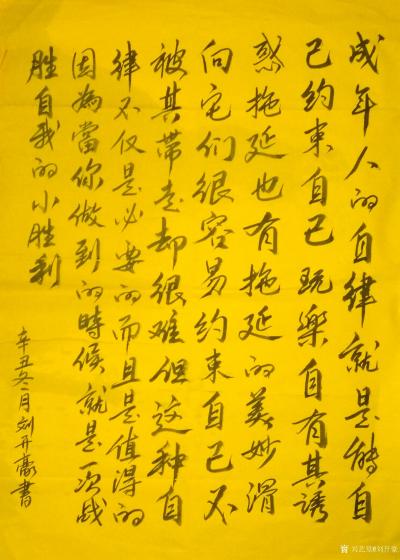 成年人的自律就是能自
己约束自己玩樂自有其誘
惑拖延也有拖延的美妙滑
向它们很容易约束自己不
被其带走却很难但这种自
律不仅是必要的而且是值得的
因為當你做到的時候就是一次战
胜自我的小胜利
辛丑冬月刘开豪書